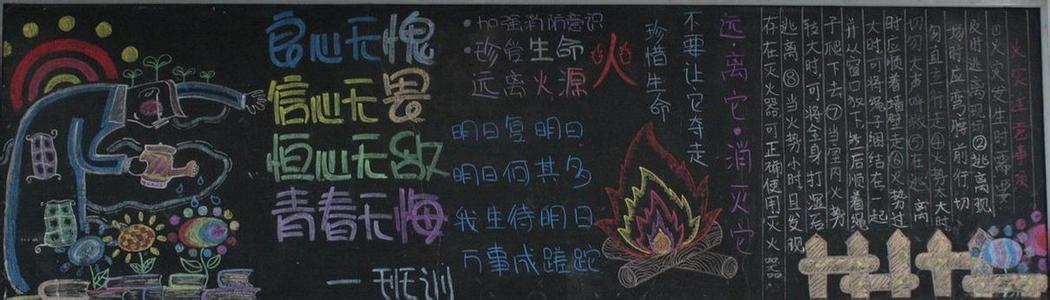 良心无愧
信心无畏
恒心无敌
青春无悔
一班训
·加强消防意识
·珍爱生命
远离火源
火
明日复明日
明日何其多
我生待明日
万事成蹉跎
远离它·消灭它
不要让它夺走
珍惜生命
火灾注意事项
①火灾发生时需要
及时逃离现场②逃离现
场时应弯腰前行切
勿直立行走④火势大时
切勿大声呼救⑤在逃离
时应顺着墙壁走⑥火势过
大时可将绳子捆结在一起
并从窗口放下然后顺着绳
子爬下去⑦当屋内火势
较大时,可将全身打湿后
逃离⑧当火势小时且发现
存在灭火器可正确使用灭火器.